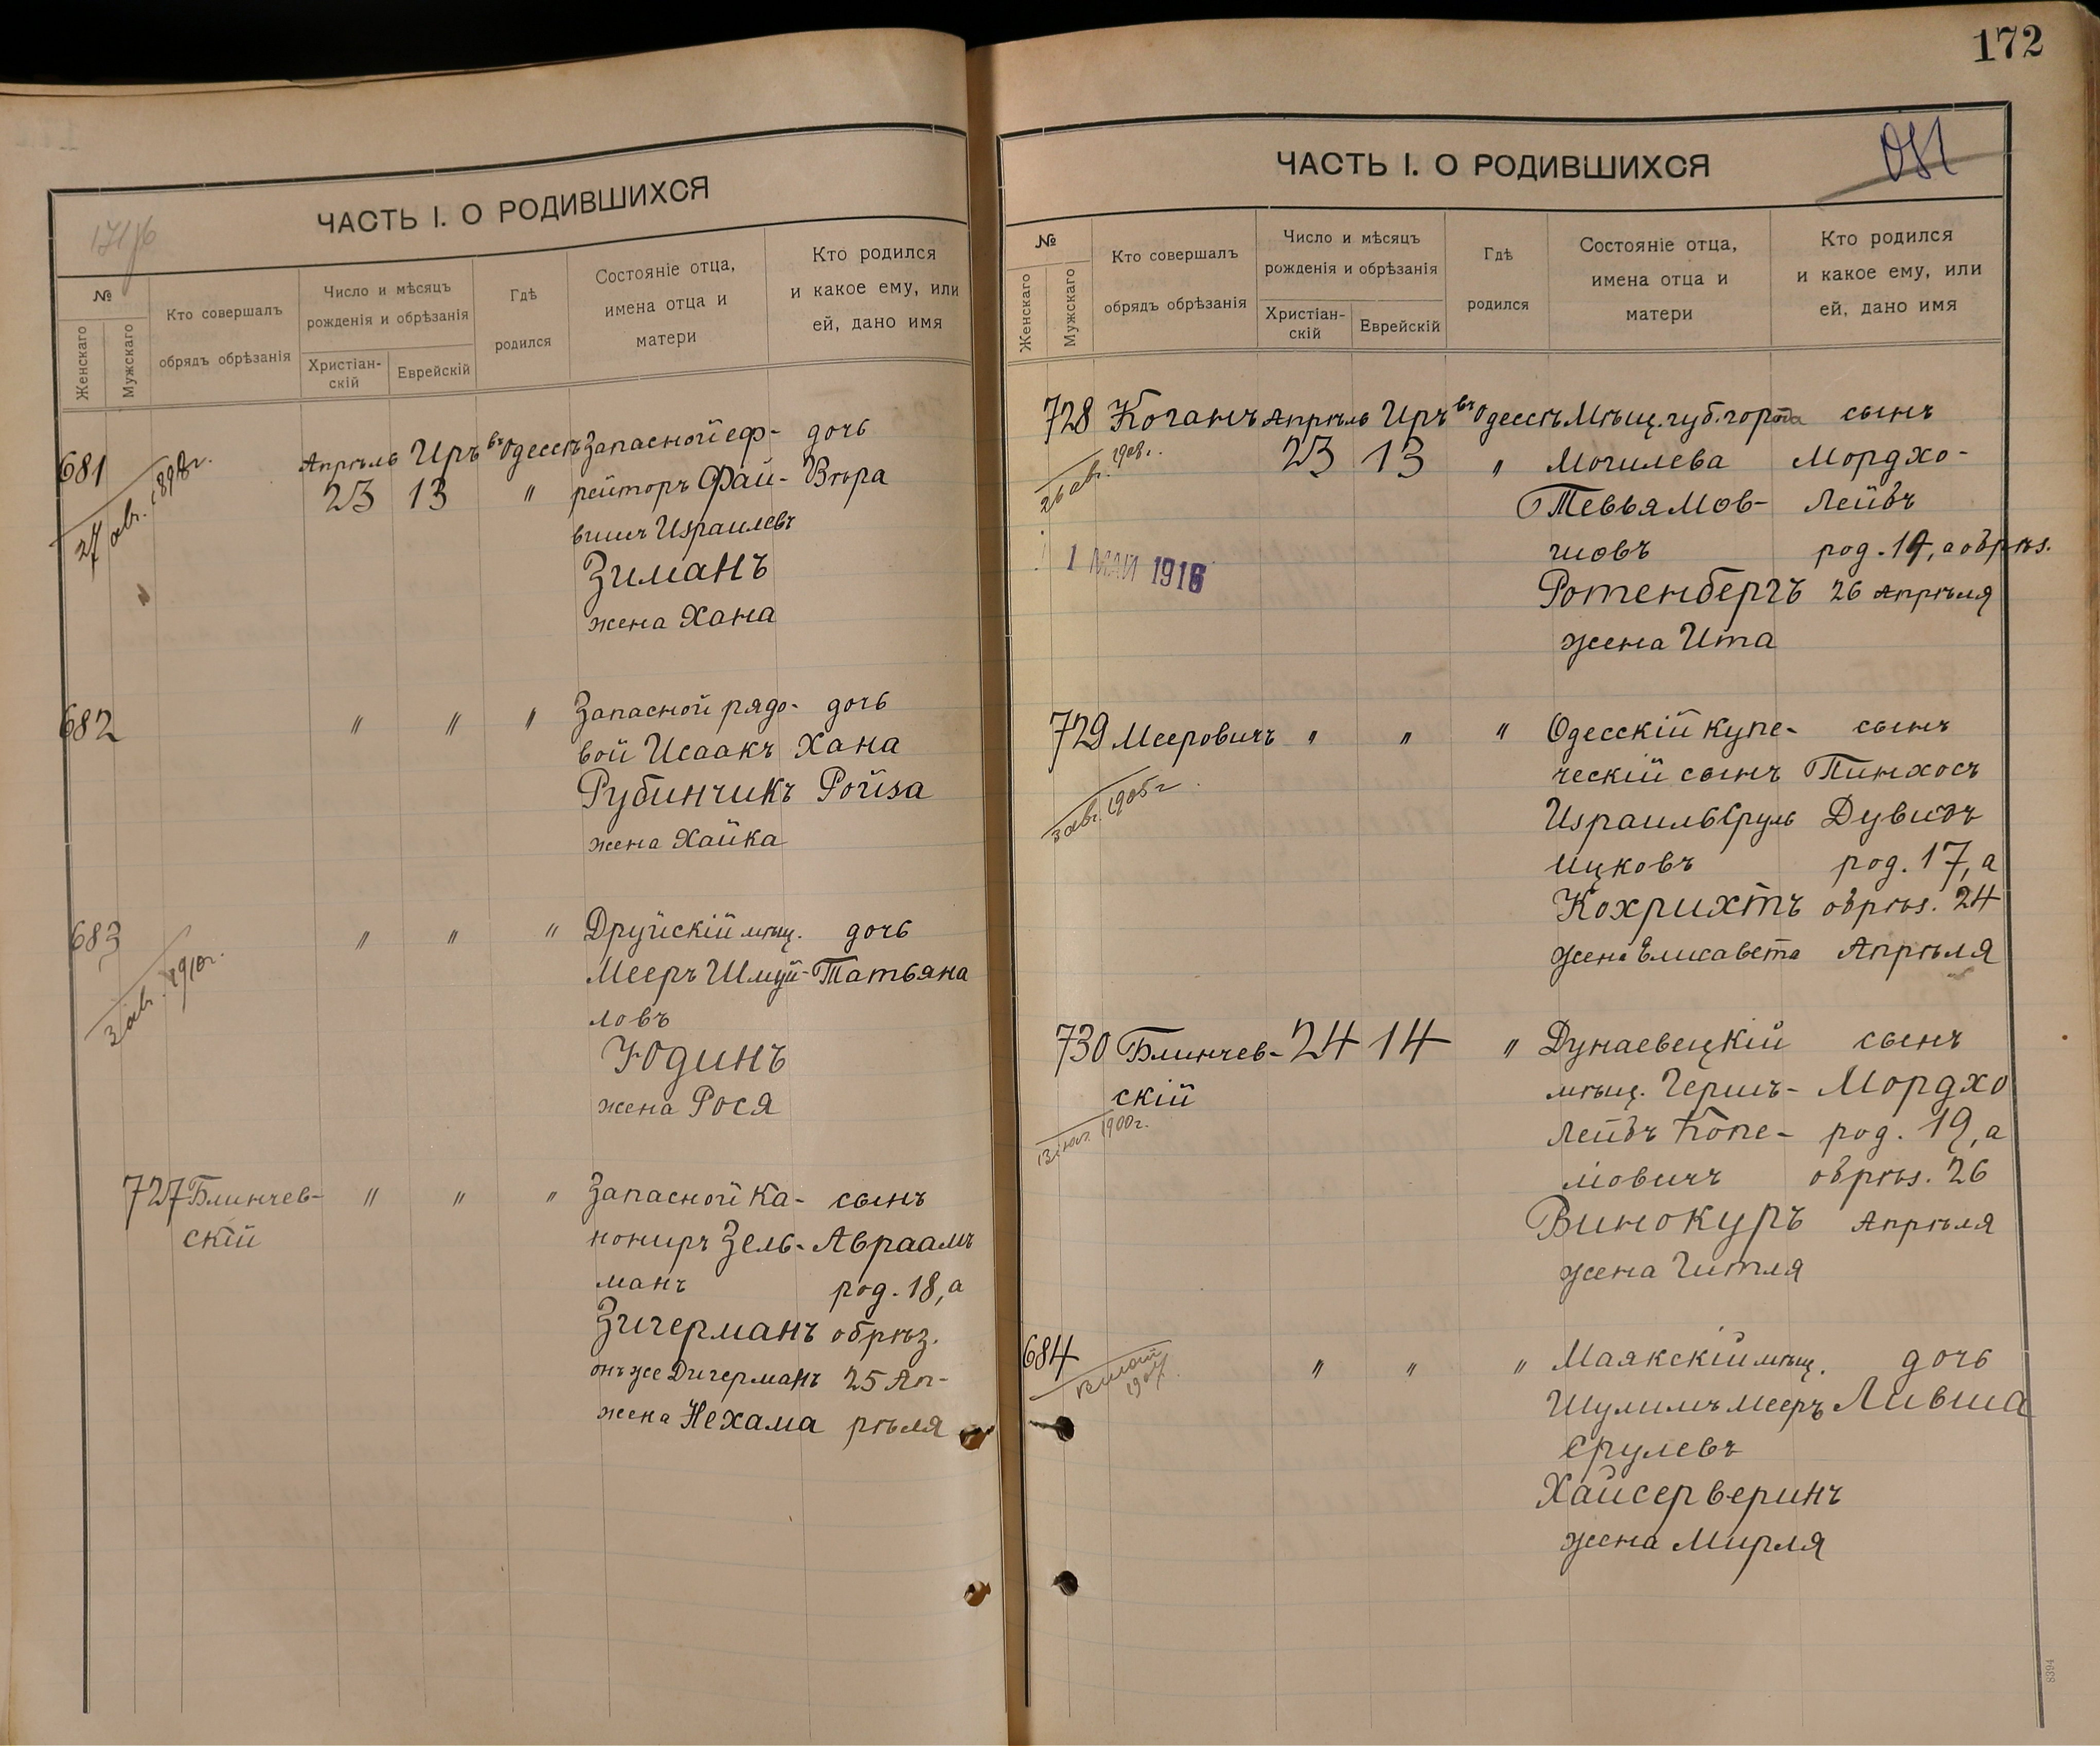 ЧАСТЬ I. О РОДИВШИХСЯ
№
Женскаго
Мужскаго
Кто совершалъ
обрядъ обрѣзанія
Число и мѣсяцъ
рожденія и обрѣзанія
Христіан-
скій
Еврейскій
Гдѣ
родился
Состояніе отца,
имена отца и
матери
Кто родился
и какое ему, или
ей, дано имя
681 Апрѣль Иръ въ Одессѣ Запасной еф- дочь
23 13 " рейторъ Фай- Вѣра
вишъ Израилевъ
Зиманъ
жена Хана
27 авг. 1898 г.
682 " " " Запасной рядо- дочь
вой Исаакъ Хана
Рубинчикъ Ройза
жена Хайка
683 " " " Друйскій мѣщ. дочь
Мееръ Шмуй- Татьяна
ловъ
Юдинъ
жена Рося
3 авг. 1910 г.
727 Блинчев- " " " Запасной ка- сынъ
скій нониръ Зель- Авраамъ
манъ род. 18, а
Зигерманъ обрѣз.
онъ же Дигерманъ 25 Ап-
жена Нехама рѣля
172
ЧАСТЬ I. О РОДИВШИХСЯ
№
Женскаго
Мужскаго
Кто совершалъ
обрядъ обрѣзанія
Число и мѣсяцъ
рожденія и обрѣзанія
Христіан-
скій
Еврейскій
Гдѣ
родился
Состояніе отца,
имена отца и
матери
Кто родился
и какое ему, или
ей, дано имя
728 Коганъ Апрѣль Иръ въ Одессѣ Мѣщ. губ. города сынъ
23 13 " Могилева Мордхо-
Тевья Мов- Лейбъ
шовъ род. 19, а обрѣз.
Ротенбергъ 26 Апрѣля
жена Ита
26 авг. 1908 г.
1 МАЙ 1916
729 Мееровичъ " " " Одесскій купе- сынъ
ческій сынъ Пинхосъ
Израиль Сруль Дувидъ
Ицковъ род. 17, а
Кохрихтъ обрѣз. 24
жена Елисавета Апрѣля
3 авг. 1905 г.
730 Блинчев- 24 14 " Дунаевецкій сынъ
скій мѣщ. Гершъ- Мордхо
Лейбъ Боне- род. 19, а
мовичъ обрѣз. 26
Винокуръ Апрѣля
жена Гитля
1900 г.
684 " " " Маякскій мѣщ. дочь
Шулимъ Мееръ Ливша
Срулевъ
Хайсерверинъ
жена Мирля
8394